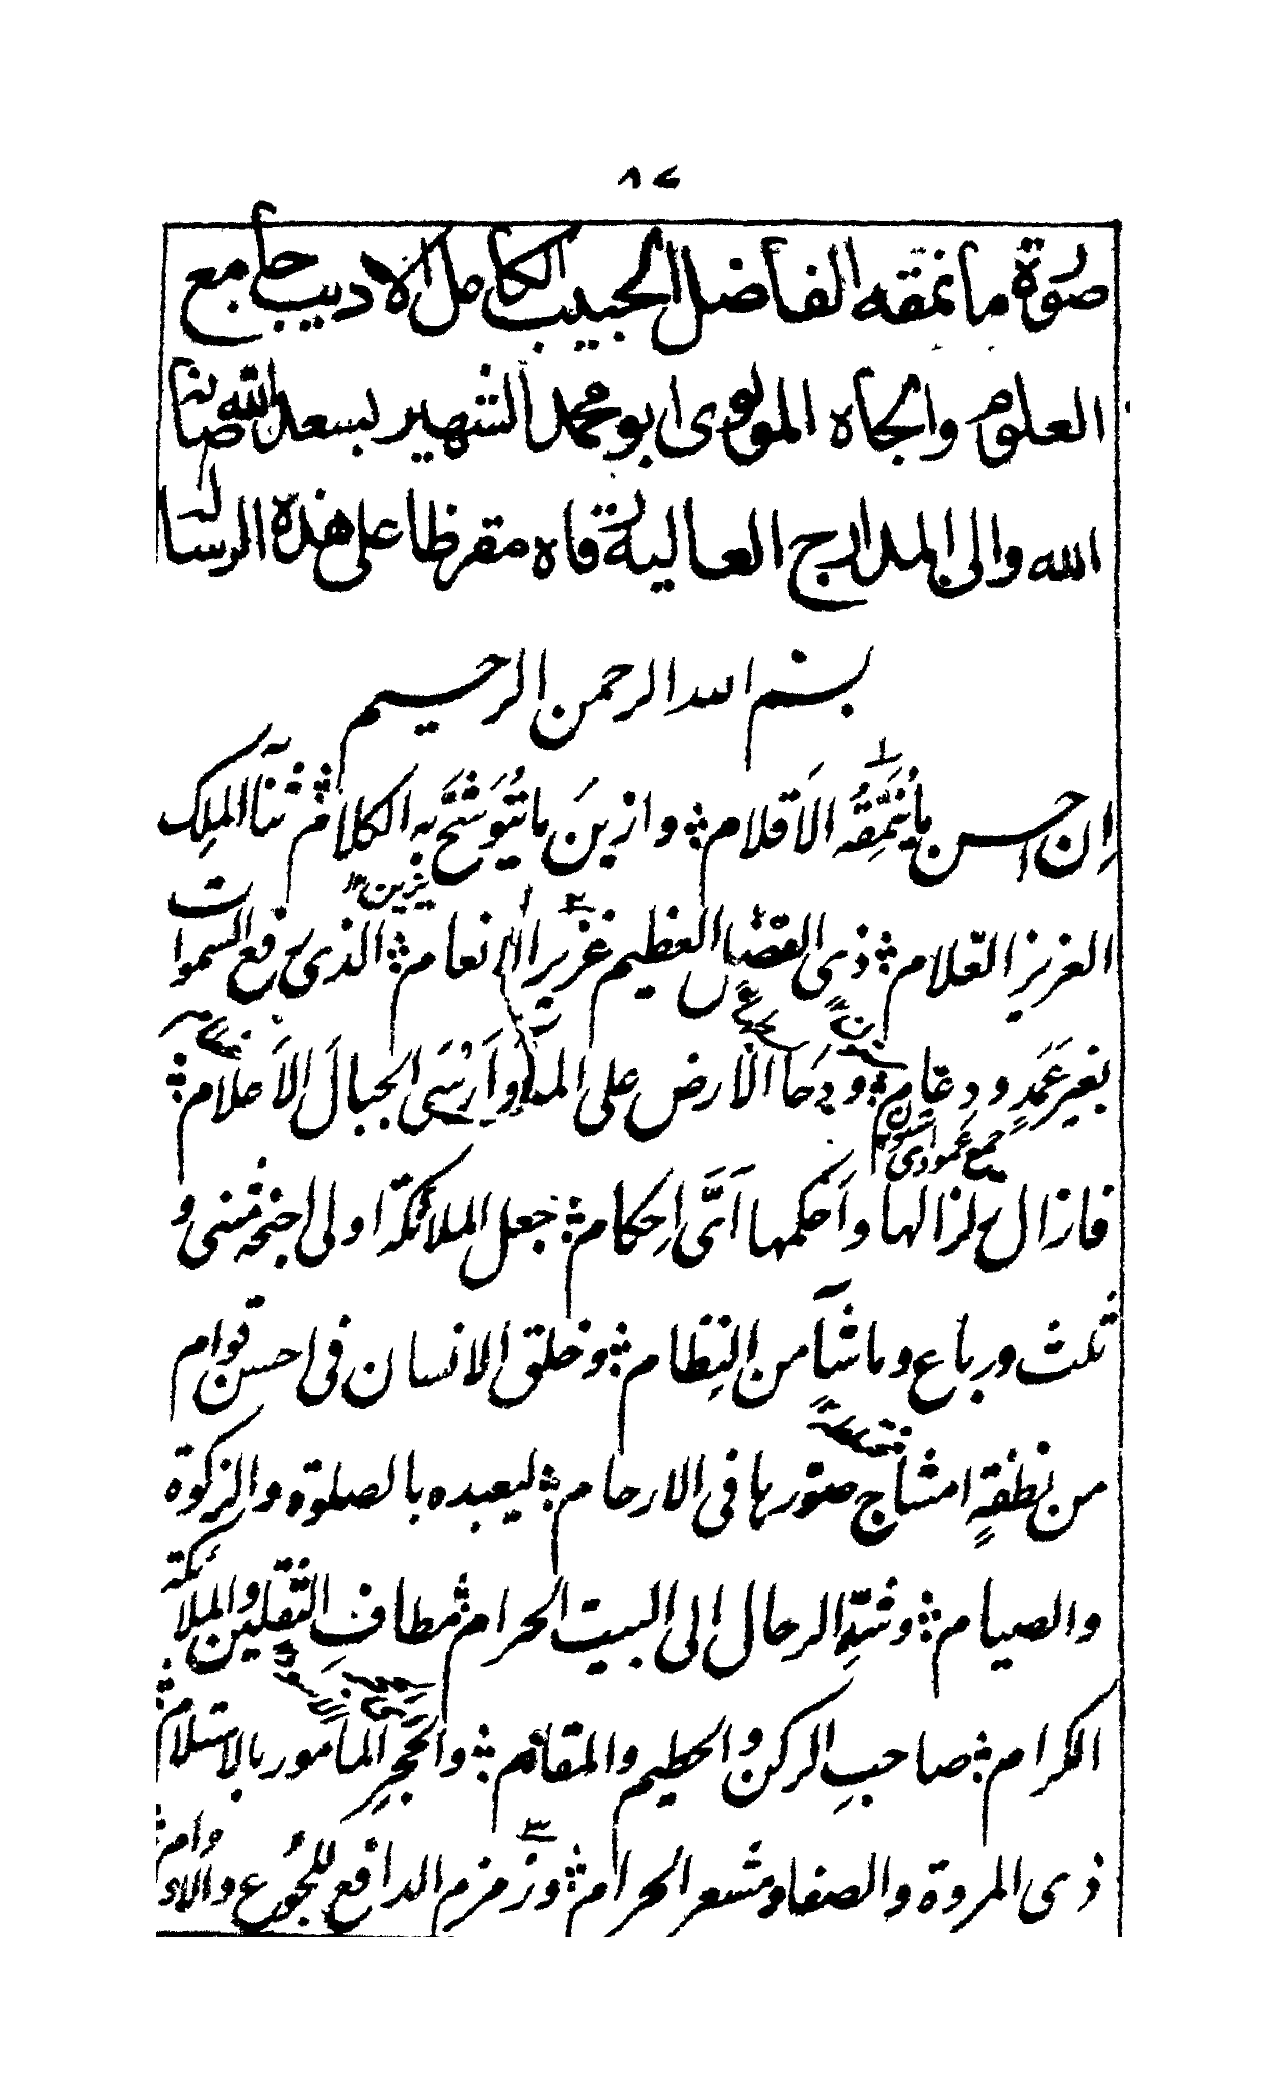 ٨٧
صورة ما نمقه الفاضل الحبيب الكامل الاديب جامع
العلوم والجاه المولوى ابو محمد الشهير بسعد الله صانه
الله والى المدارج العالية قاه مقرظا على هذه الرسالة
بسم الله الرحمن الرحيم
إن احسن ما نُمِّقَه الاَقلام ؞ وازينَ ما تُتوشَّح به الكلام ؞ ثنآ الملِك
تزين
العزيز العّلام ؞ ذى الفضل العظيم غزير الانعام ؞ الذى رفع السموات
بغير عَمَدٍ ودعام ؞ ودَحَا الارض على المآ وَاَرْسَى الجبالَ الاَعلام ؞
جمع عمود اى ستون
فازال زلزالها واَحكمها اَتَّى اِحكام ؞ جعل الملائكة اولى اجنحة مثنى و
ثلث ورباع وما شآ من النِظام ؞ وخلق الانسان فى احسن قوام
من نطفةٍ امشاجٍ صوّرها فى الارحام ؞ ليعبده بالصلوة والزكوة
والصيام ؞ وشدِّ الرحال الى البيت الحرام ؞ مطافِ الثقلين والملائكة
الكرام ؞ صاحبِ الركن والحطيم والمقام ؞ والحَجَرِ المامور بالاستلام ؞
ذى المروة والصفا ومشعر الحرام ؞ وزمزم الدافع للجُوع والاُوام ؞